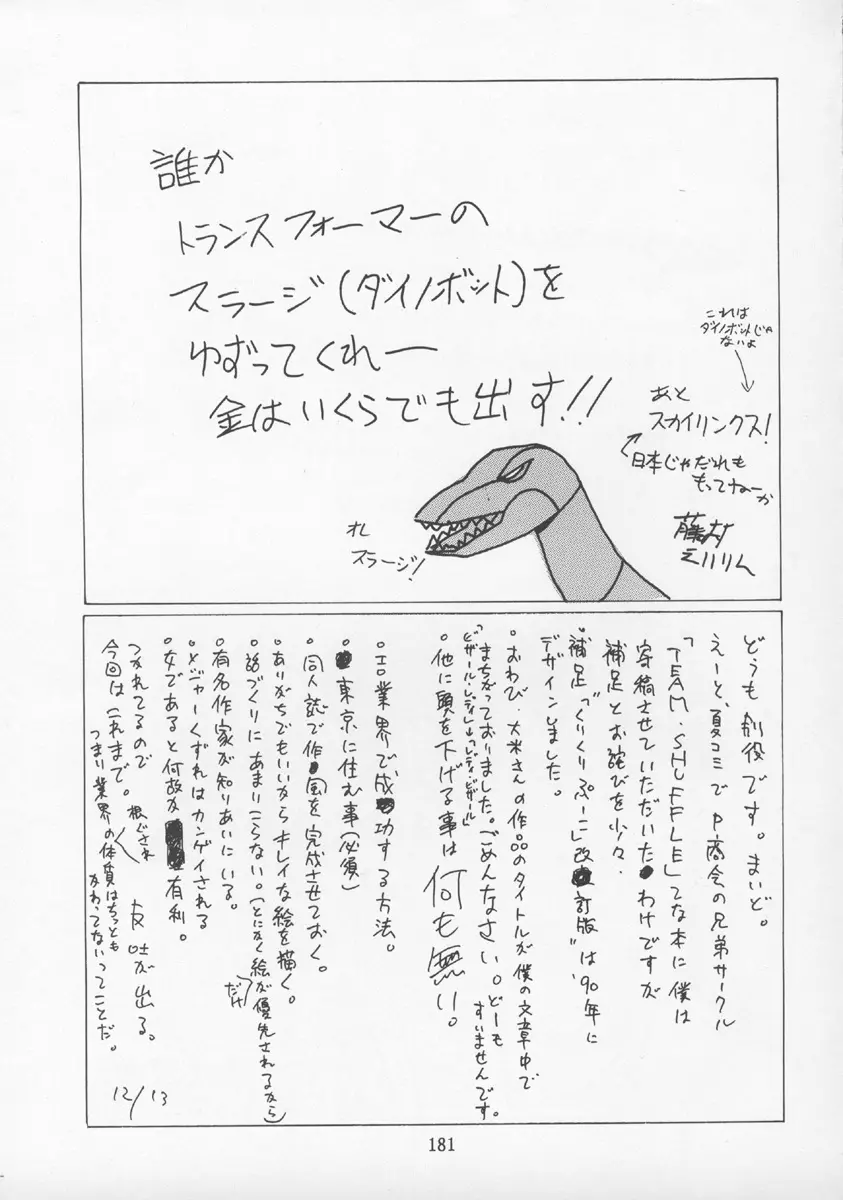 誰か
トランスフォーマーの
スラージ(ダイノボット)を
ゆずってくれー
金はいくらでも出す!!
これは
ダイノボットじゃ
ないよ
あと
スカイリンクス!
日本じゃだれも
もってねーか
オレ
スラージ!
藤村
えいりん
どうも 削役です。まいど。
えーと、夏コミでP商会の兄弟サークル
「TEAM・SHUFFLE」てな本に僕は
寄稿させていただいたわけですが
補足とお詫びを少々.
・補足 "くりくりぷーこ 改訂版" は '90年に
デザインしました。
・おわび・大米さんの作品のタイトルが僕の文章中で
まちがっておりました。ごめんなさい。どーも
すいませんです。
「ビザール・レディ」→「レディ・ビザール」
・他に頭を下げる事は 何も無い。
・エロ業界で成功する方法。
・東京に住む事(必須)
・同人誌で作風を完成させておく。
・ありがちでもいいからキレイな絵を描く。
・話づくりにあまりこらない。(とにかく絵だけが優先されるから)
・有名作家が知りあいにいる。
・メジャーくずれはカンゲイされる
・女であると何故か有利。
つかれてるので
今回はこれまで。根ぐされ
反吐が出る。
つまり業界の体質はちっとも
かわってないってことだ。
12/13
181